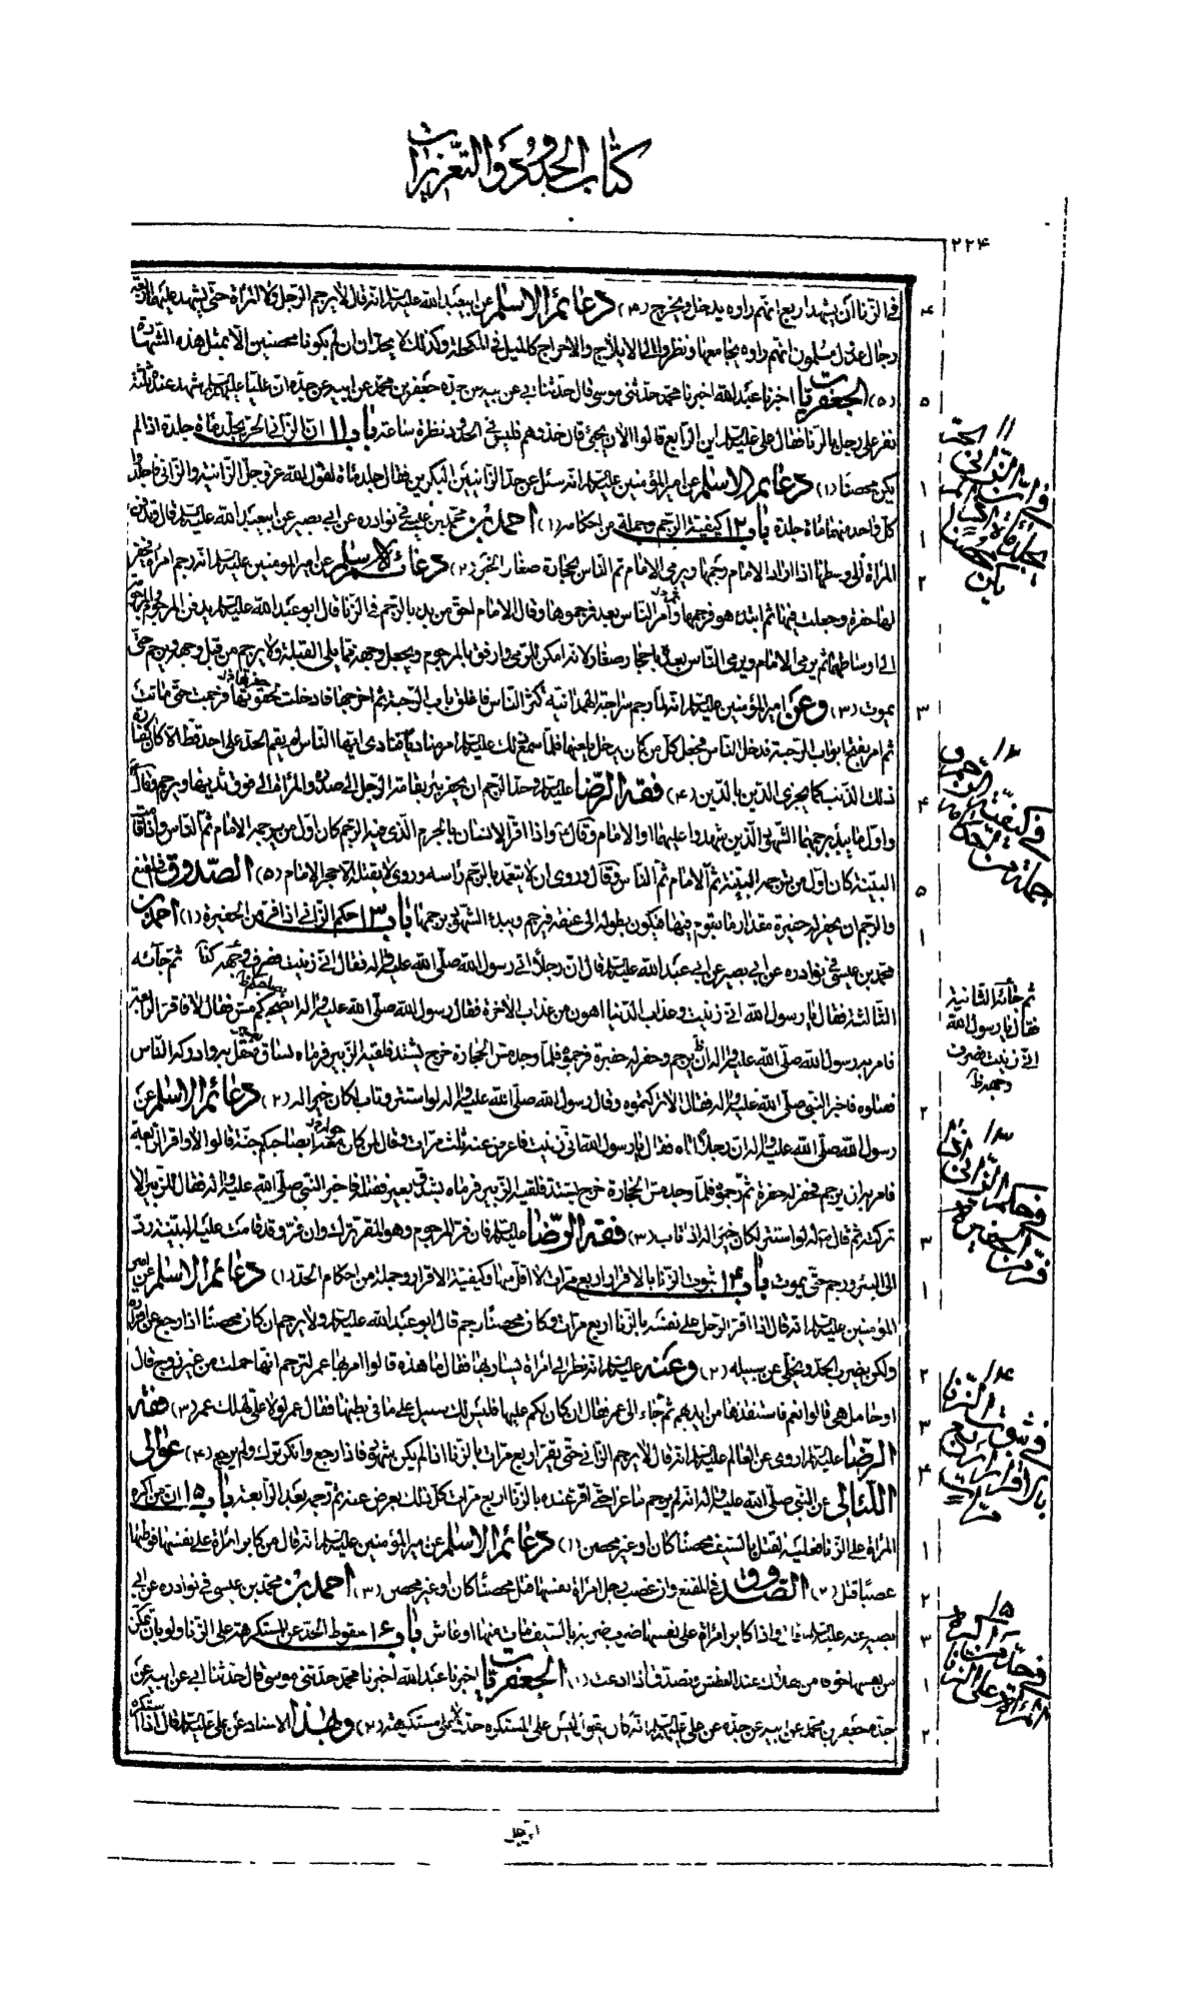 كتاب الحدود والتعزيرات
۲۲۴
في الزنا الا ان يشهد اربع انهم راوه يدخل ويخرج (۴) دعائم الاسلام عن ابي عبد الله عليه السلام انه قال لا يرجم الرجل ولا المراة حتى يشهد عليهما اربعة
رجال عدول مسلمون انهم راوه يجامعها ونظروا الى الايلاج والاخراج كالميل في المكحلة وكذلك لا يحدان ان لم يكونا محصنين الا بمثل هذه الشهادة
(۵) الجعفريات اخبرنا عبد الله اخبرنا محمد حدثني موسى قال حدثنا ابي عن ابيه عن جده جعفر بن محمد عن ابيه عن جده ان عليا عليه السلام شهد عنده ثلثة
نفر على رجل بالزنا فقال علي عليه السلام اين الرابع قالوا الان يجئ قال خذوهم فليس في الحدود نظرة ساعة باب ۱۱ ان الزاني الحر يجلد مائة جلدة اذا لم
يكن محصنا (۱) دعائم الاسلام عن امير المؤمنين عليه السلام انه سئل عن حد الزانيين البكرين فقال جلد مائة لقول الله عز وجل الزانية والزاني فاجلدوا
كل واحد منهما مائة جلدة باب ۱۲ كيفية الرجم وجملة من احكامه (۱) احمد بن محمد بن عيسى في نوادره عن ابي بصير عن ابي عبد الله عليه السلام قال وتدفن
المراة الى وسطها اذا اراد الامام رجمها ويرمي الامام ثم الناس بحجارة صغار الخبر (۲) دعائم الاسلام عن امير المؤمنين عليه السلام انه رجم امراة فحفر
لها حفرة وجعلت فيها ثم ابتدء هو فرجمها وامر الناس بعد فرجموها وقال الامام احق من بدء بالرجم في الزنا قال ابو عبد الله عليه السلام يدفن المرجوم والمرجومة
الى اوساطهما ثم يرمي الامام ويرمي الناس بعده باحجار صغار لانه امكن للرمي وارفق بالمرجوم ويجعل وجهه مما يلي القبلة ولا يرجم من قبل وجهه ويرجم حتى
يموت (۳) وعن امير المؤمنين عليه السلام انه لما رجم سراجة الهمدانية كثر الناس فاغلق باب الرحبة ثم اخرجها فادخلت حفرتها فرجمت حتى ماتت
ثم امر بفتح ابواب الرحبة فدخل الناس فجعل كل من كان يدخل يلعنها فلما سمع ذلك عليه السلام امر مناديا فنادى ايها الناس لم يقم الحد على احد قط الا كان كفارة
ذلك الذنب كما يجزى الدين بالدين (۴) فقه الرضا عليه السلام وحد الرجم ان يحفر بئر بقامة الرجل الى صدره والمراة الى فوق ثدييها ويرجم وقال
واول ما يبدء برجمهما الشهود الذين شهدوا عليهما او الامام وقال واذا اقر الانسان بالجرم الذي فيه الرجم كان اول من يرجمه الامام ثم الناس واذا قامت
البينة كان اول من يرجمه البينة ثم الامام ثم الناس وقال وروي ان لا يتعمد بالرجم راسه وروي لا يقتله الا حجر الامام (۵) الصدوق في المقنع
والرجم ان يحفر له حفيرة مقدار ما يقوم فيها فيكون بطوله الى عنقه فيرجم ويبدء الشهود برجمها باب ۱۳ حكم الزاني اذا فر من الحفيرة (۱) احمد بن
محمد بن عيسى في نوادره عن ابي بصير عن ابي عبد الله عليه السلام قال ان رجلا اتى رسول الله صلى الله عليه واله فقال اني زنيت فصرف وجهه كذا ثم جائه
الثالثة فقال يا رسول الله اني زنيت وعذاب الدنيا اهون من عذاب الاخرة فقال رسول الله صلى الله عليه واله ابصاحبكم مس فقال لا فاقر الرابعة
فامر به رسول الله صلى الله عليه واله ان يرجم وحفر له حفيرة فرجموه فلما وجد مس الحجارة خرج يشتد فلقيه الزبير فرماه بساق بعير فعقل به وادركه الناس
فقتلوه فاخبر النبي صلى الله عليه واله فقال الا تركتموه وقال رسول الله صلى الله عليه واله لو استتر وتاب لكان خيرا له (۲) دعائم الاسلام عن
رسول الله صلى الله عليه واله ان رجلا اتاه فقال يا رسول الله اني زنيت فاعرض عنه ثلث مرات وقال لمن كان معه ابصاحبكم جنة قالوا لا واقر الرابعة
فامر به ان يرجم فحفر له حفرة ثم رجموه فلما وجد مس الحجارة خرج يشتد فلقيه الزبير فرماه بشدق بعير فقتله فاخبر النبي صلى الله عليه واله فقال للزبير الا
تركته ثم قال لو استتر لكان خيرا له اذا تاب (۳) فقه الرضا عليه السلام فان فر المرجوم وهو المقر ترك وان فر وقد قامت عليه البينة رد
الى البئر ورجم حتى يموت باب ۱۴ ثبوت الزنا بالاقرار اربع مرات لا اقل منها وكيفية الاقرار وجملة من احكام الحد (۱) دعائم الاسلام عن امير
المؤمنين عليه السلام انه قال اذا اقر الرجل على نفسه بالزنا اربع مرات وكان محصنا رجم قال ابو عبد الله عليه السلام ولا يرجم ان كان محصنا اذا رجع عن اقراره
ولكن يضرب الحد ويخلى عن سبيله (۲) وعنه عليه السلام انه نظر الى امراة يسار بها فقال ما هذه قالوا امر بها عمر لترجم انها حملت من غير زوج قال
او حامل هي قالوا نعم فاستنقذها من ايديهم ثم جاء الى عمر فقال ان كان لكم عليها فليس لك سبيل على ما في بطنها فقال عمر لولا علي لهلك عمر (۳) فقه
الرضا عليه السلام اروي عن العالم عليه السلام انه قال لا يرجم الزاني حتى يقر اربع مرات بالزنا اذا لم يكن شهود فاذا رجع وانكر ترك ولم يرجم (۴) عوالي
اللئالي عن النبي صلى الله عليه واله انه لم يرجم ماعزا حتى اقر عنده بالزنا اربع مرات كل ذلك يعرض عنه ثم رجمه بعد الرابعة باب ۱۵ ان من اكره
المراة على الزنا فعليه القتل بالسيف محصنا كان او غير محصن (۱) دعائم الاسلام عن امير المؤمنين عليه السلام انه قال من كابر امراة على نفسها فوطئها
غصبا قتل (۲) الصدوق في المقنع وان غصب رجل امراة نفسها قتل محصنا كان او غير محصن (۳) احمد بن محمد بن عيسى في نوادره عن ابي
بصير عنه عليه السلام قال واذا كابر امراة على نفسها ضرب ضربة بالسيف مات منها او عاش باب ۱۶ سقوط الحد عن المستكرهة على الزنا ولو بان تمكن
من نفسها خوفا من هلاك عند العطش وتصدق اذا ادعت (۱) الجعفريات اخبرنا عبد الله اخبرنا محمد حدثني موسى قال حدثنا ابي عن ابيه عن
جده جعفر بن محمد عن ابيه عن جده عن علي عليه السلام انه كان يقول ليس على المستكره حد ولا على مستكرهة (۲) وبهذا الاسناد عن علي عليه السلام قال اذا استكره
۱۱ في ان الزاني الحر يجلد مائة اذا لم يكن محصنا
۱۲ في كيفية الرجم وجملة من احكامه
ثم جائه الثانية
فقال يا رسول الله
اني زنيت فصرف
وجهه ظ
۱۳ في حكم الزاني اذا فر من الحفيرة
۱۴ في ثبوت الزنا بالاقرار اربع مرات
۱۵ في حد من اكره المراة على الزنا